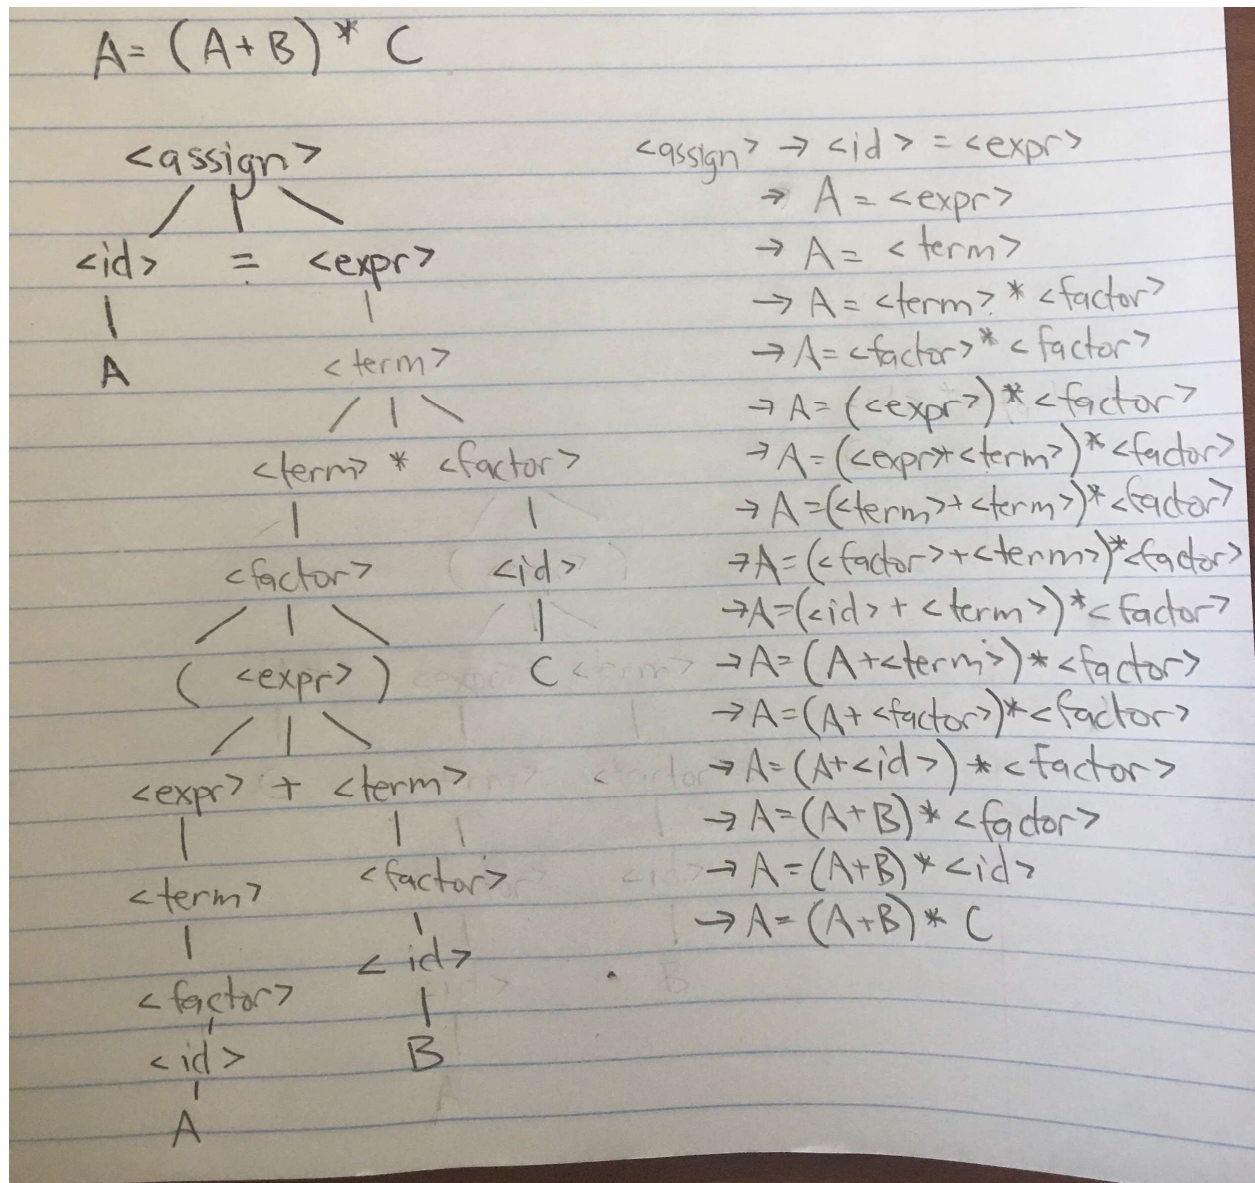 A = (A+B) * C
<assign>
<id> = <expr>
A <term>
<term> * <factor>
<factor> <id>
( <expr> ) C
<expr> + <term>
<term> <factor>
<factor> <id>
<id> B
A
<assign> → <id> = <expr>
→ A = <expr>
→ A = <term>
→ A = <term> * <factor>
→ A = <factor> * <factor>
→ A = (<expr>) * <factor>
→ A = (<expr>+<term>) * <factor>
→ A = (<term>+<term>) * <factor>
→ A = (<factor>+<term>) * <factor>
→ A = (<id> + <term>) * <factor>
→ A = (A+<term>) * <factor>
→ A = (A+<factor>) * <factor>
→ A = (A+<id>) * <factor>
→ A = (A+B) * <factor>
→ A = (A+B) * <id>
→ A = (A+B) * C